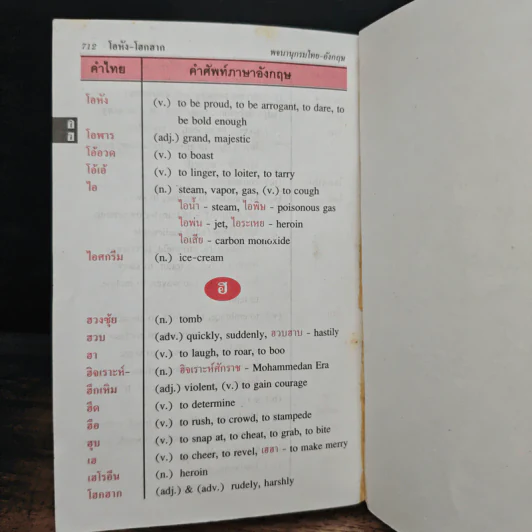 712 โอหัง-โฮกฮาก
พจนานุกรมไทย-อังกฤษ
คำไทย คำศัพท์ภาษาอังกฤษ
โอหัง (v.) to be proud, to be arrogant, to dare, to
be bold enough
อ
ฮ
โอฬาร (adj.) grand, majestic
โอ้อวด (v.) to boast
โอ้เอ้ (v.) to linger, to loiter, to tarry
ไอ (n.) steam, vapor, gas, (v.) to cough
ไอน้ำ - steam, ไอพิษ - poisonous gas
ไอพ่น - jet, ไอระเหย - heroin
ไอเสีย - carbon monoxide
ไอศกรีม (n.) ice-cream
ฮ
ฮวงซุ้ย (n.) tomb
ฮวบ (adv.) quickly, suddenly, ฮวบฮาบ - hastily
ฮา (v.) to laugh, to roar, to boo
ฮิจเราะห์- (n.) ฮิจเราะห์ศักราช - Mohammedan Era
ฮึกเหิม (adj.) violent, (v.) to gain courage
ฮึด (v.) to determine
ฮือ (v.) to rush, to crowd, to stampede
ฮุบ (v.) to snap at, to cheat, to grab, to bite
เฮ (v.) to cheer, to revel, เฮฮา - to make merry
เฮโรอีน (n.) heroin
โฮกฮาก (adj.) & (adv.) rudely, harshly